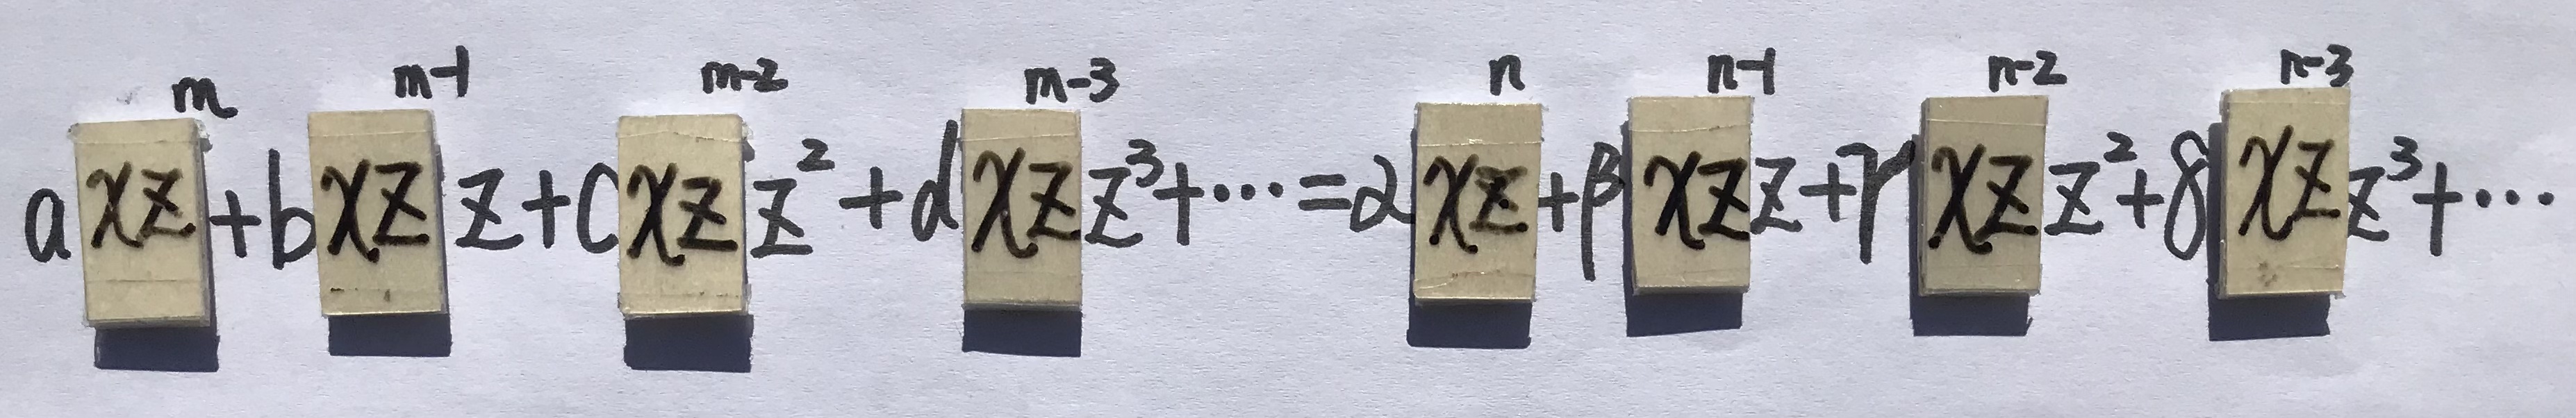 a xz^m + b xz^{m-1} z + c xz^{m-2} z^2 + d xz^{m-3} z^3 + ⋯ = α xz^n + β xz^{n-1} z + γ xz^{n-2} z^2 + δ xz^{n-3} z^3 + ⋯